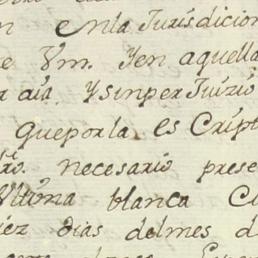 n enla Jurisdicion
e Vm. Yen aquella
r aia. Ysinper Juizio
queporla es Cript
necesario prese
Vittoria blanca C
iez dias delmes d